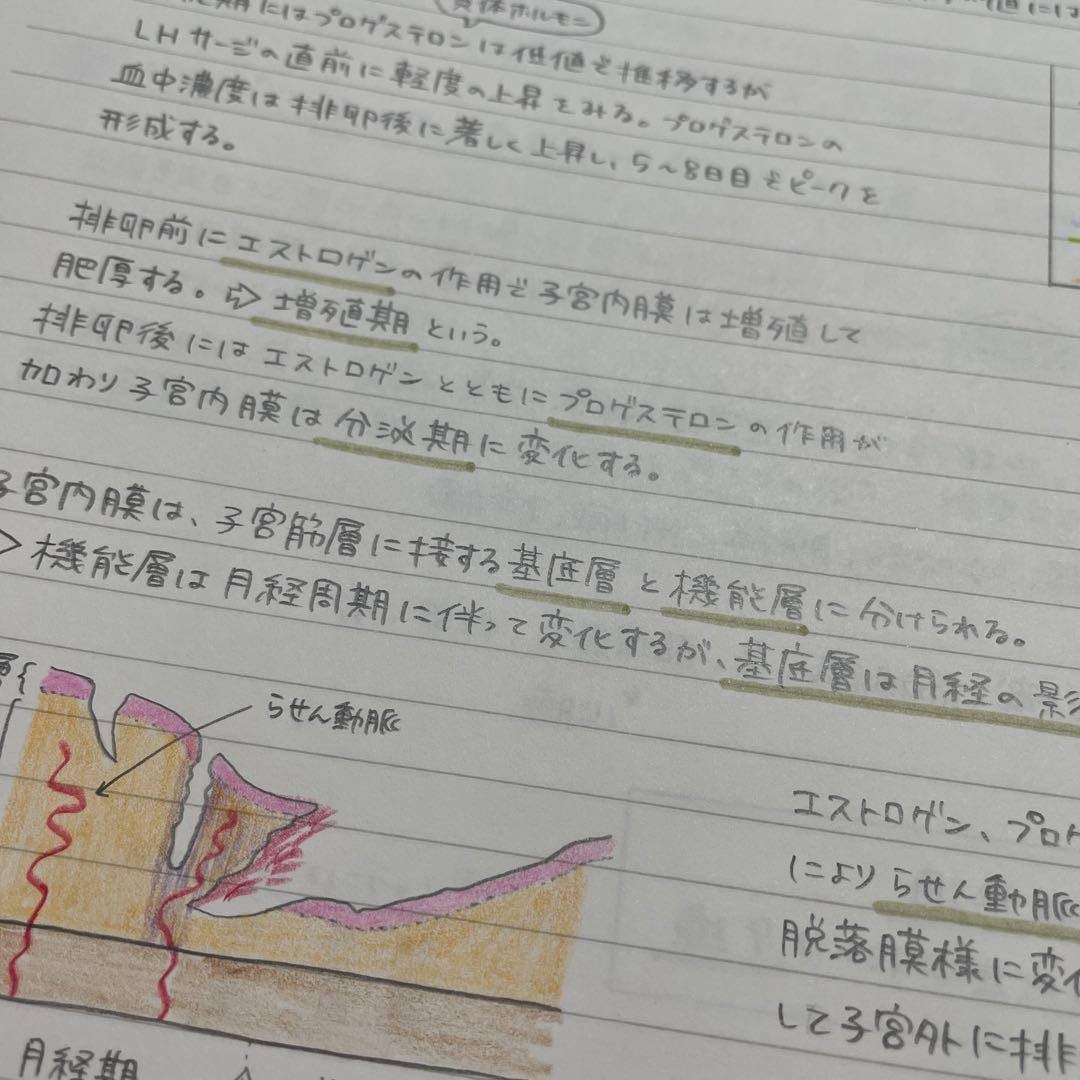 黄体ホルモン
期にはプロゲステロンは低値で推移するが
LHサージの直前に軽度の上昇をみる。プロゲステロンの
血中濃度は排卵後に著しく上昇し、5〜8日目でピークを
形成する。
排卵前にエストロゲンの作用で子宮内膜は増殖して
肥厚する。⇨増殖期という。
排卵後にはエストロゲンとともにプロゲステロンの作用が
加わり子宮内膜は分泌期に変化する。
子宮内膜は、子宮筋層に接する基底層と機能層に分けられる。
機能層は月経周期に伴って変化するが、基底層は月経の影
層
らせん動脈
エストロゲン、プロゲ
によりらせん動脈
脱落膜様に変化
して子宮外に排
月経期